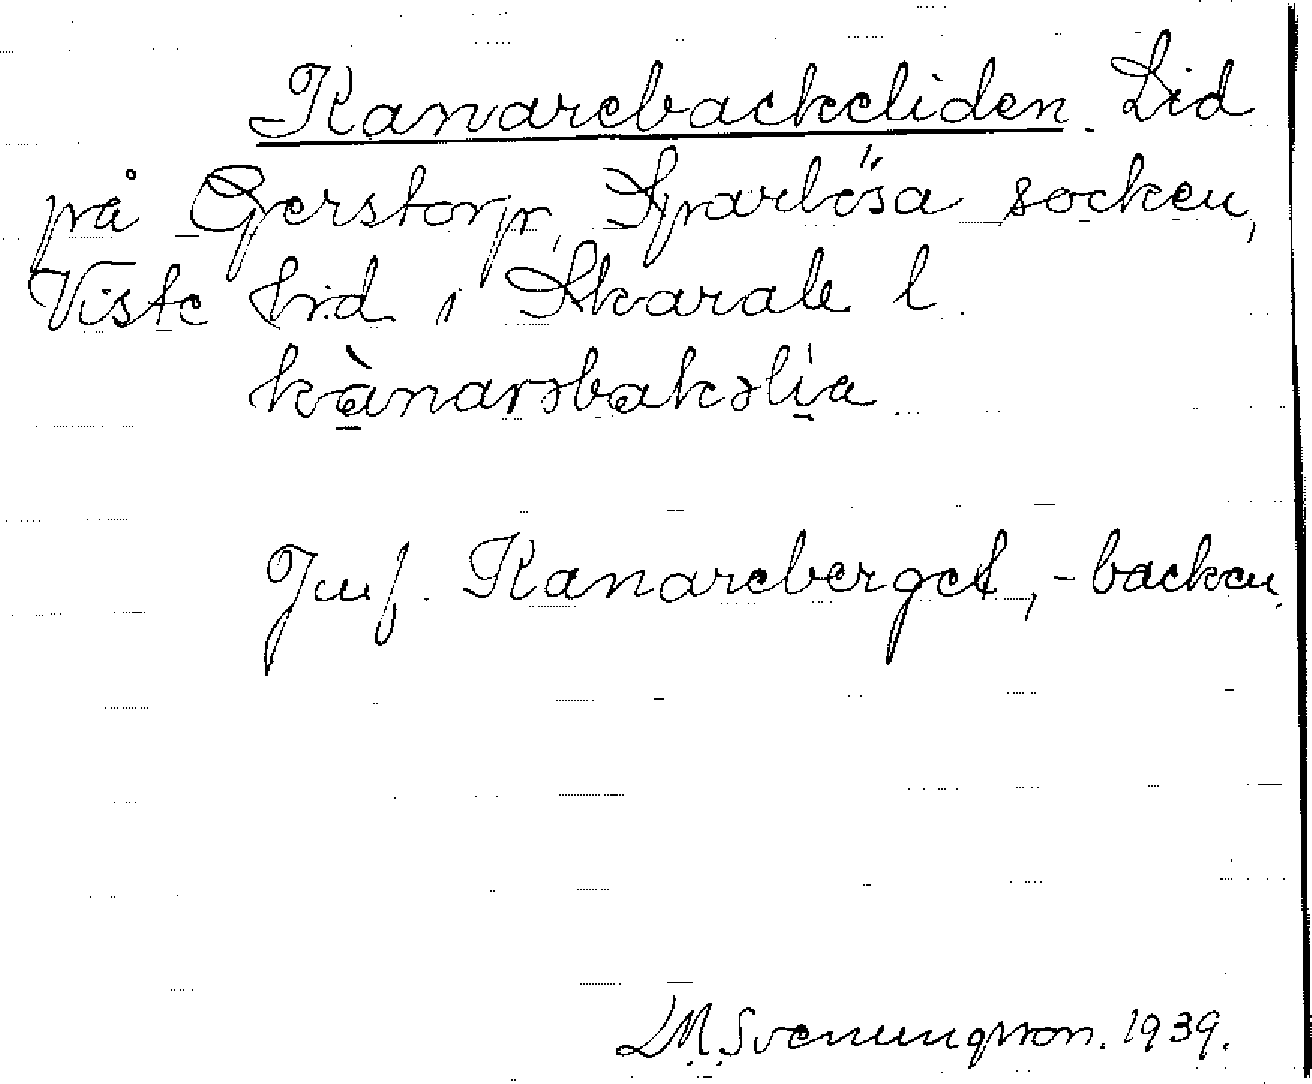 Kanarebackeliden. Lid
på Gerstorp, Sparlösa socken,
Viste hd i Skarab. l.
kànarəbakəlia
Jmf. Kanareberget, -backen.
D.M. Svenungsson. 1939.